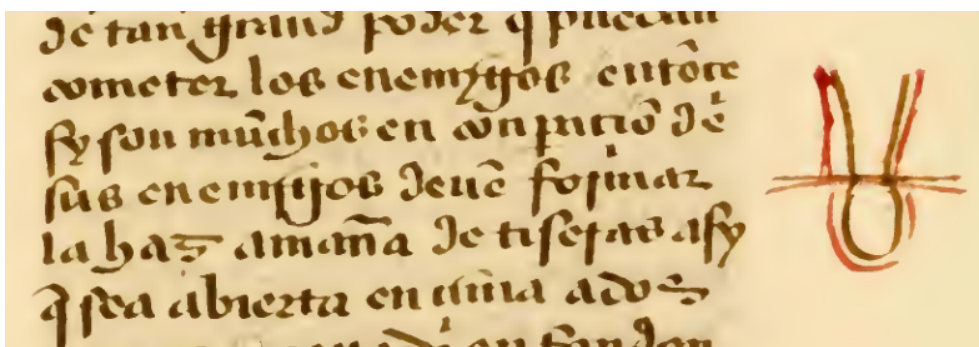 de tan grand poder q̃ puedan
cometer los enemygos entõce
sy son mũchos en conp̃aciõ de
sus enemijos deuẽ formar
la haz a mañа de tiseras asy
q̃ sea abierta en çima a dos